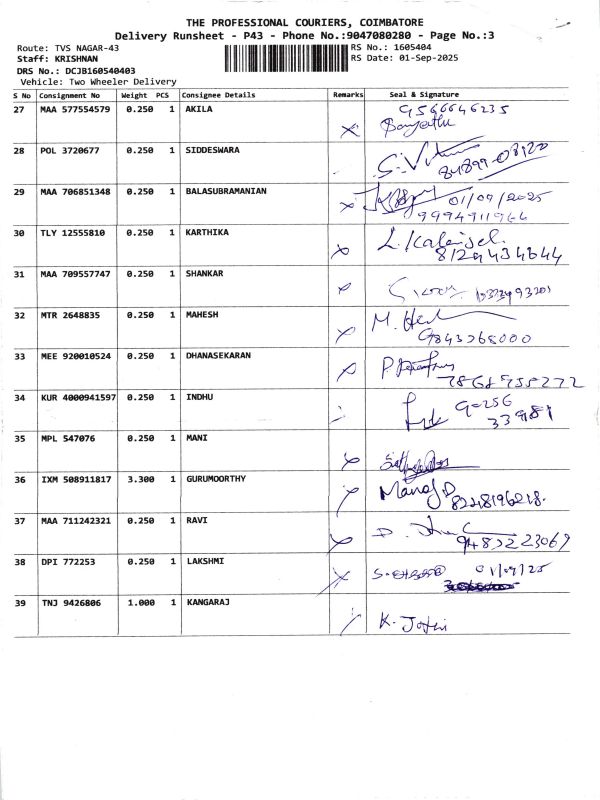 THE PROFESSIONAL COURIERS, COIMBATORE
Delivery Runsheet - P43 - Phone No.:9047080280 - Page No.:3
Route: TVS NAGAR-43 RS No.: 1605404
Staff: KRISHNAN RS Date: 01-Sep-2025
DRS No.: DCJB160540403
Vehicle: Two Wheeler Delivery
S No Consignment No Weight PCS Consignee Details Remarks Seal & Signature
27 MAA 577554579 0.250 1 AKILA 9566646235
28 POL 3720677 0.250 1 SIDDESWARA
84899-08120
29 MAA 706851348 0.250 1 BALASUBRAMANIAN 01/09/2025
9994911966
30 TLY 12555810 0.250 1 KARTHIKA
8129434644
31 MAA 709557747 0.250 1 SHANKAR
32 MTR 2648835 0.250 1 MAHESH M.
9843268000
33 MEE 920010524 0.250 1 DHANASEKARAN
34 KUR 4000941597 0.250 1 INDHU 90256
33981
35 MPL 547076 0.250 1 MANI
36 IXM 508911817 3.300 1 GURUMOORTHY Manoj.D
8248196218.
37 MAA 711242321 0.250 1 RAVI
38 DPI 772253 0.250 1 LAKSHMI 01/09/25
39 TNJ 9426806 1.000 1 KANGARAJ K. Jothi